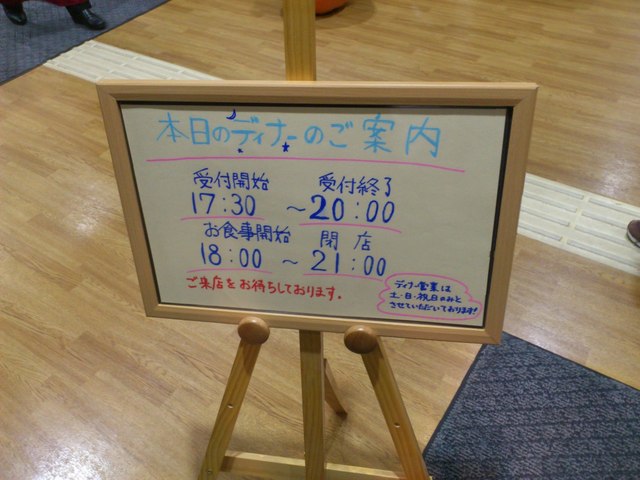 本日のディナーのご案内
受付開始 受付終了
17:30 ～20:00
お食事開始 閉店
18:00 ～ 21:00
ご来店をお待ちしております。
ディナー営業は
土・日・祝日のみと
させていただいております!